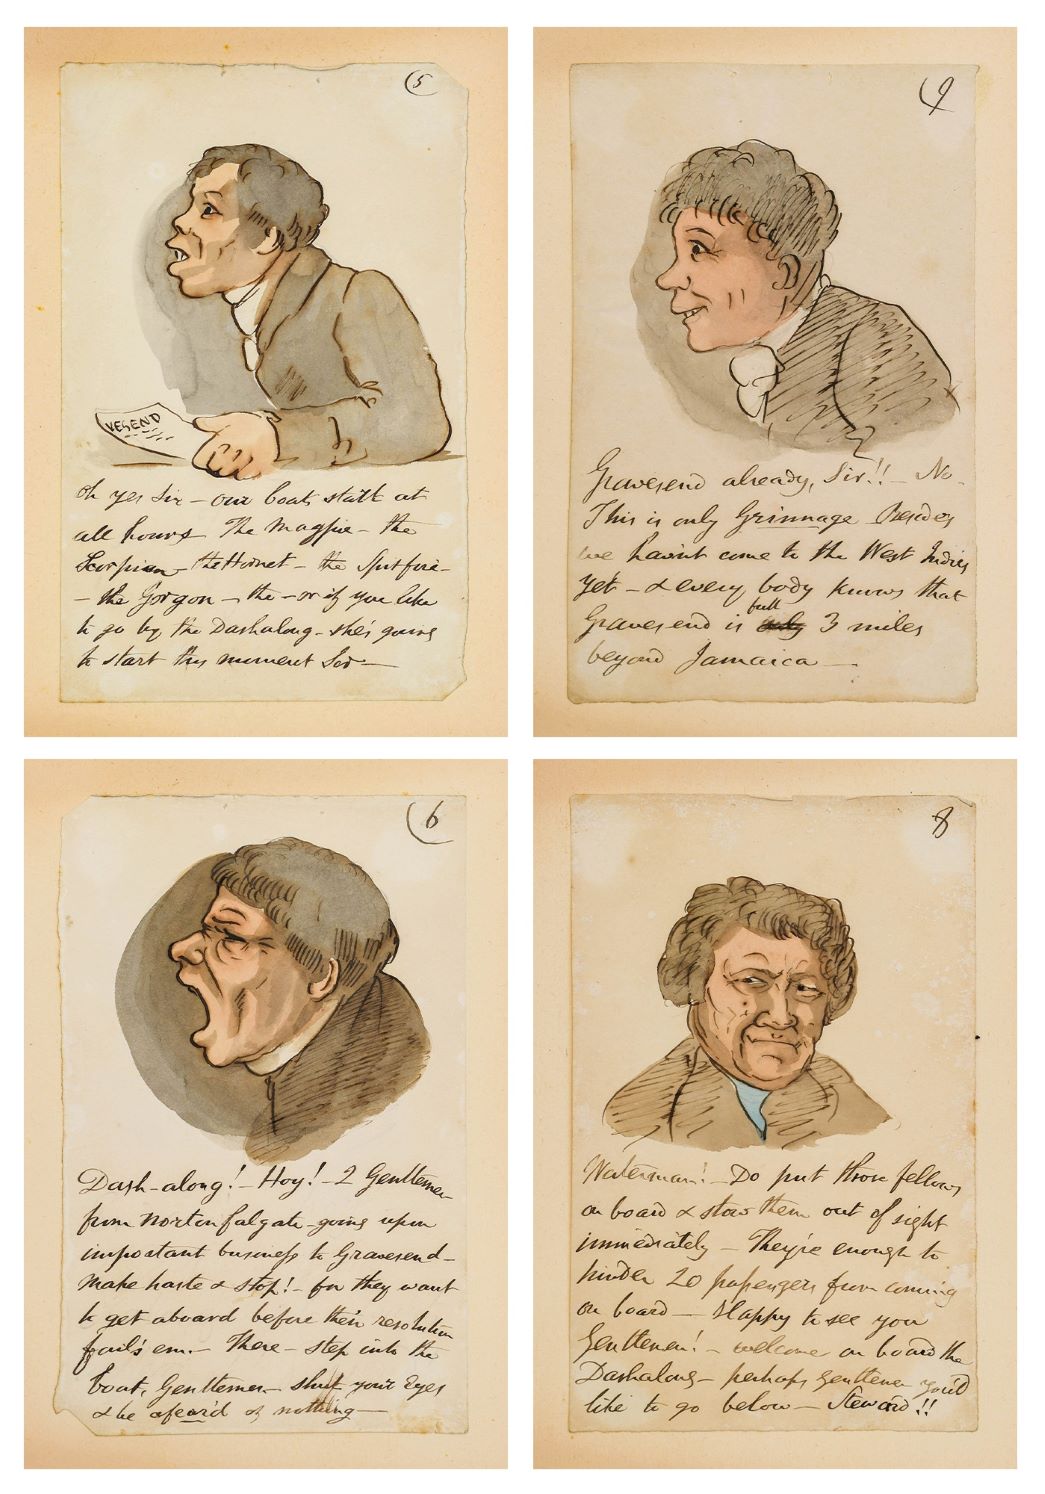 5
VESEND
Oh yes Sir - our boats start at
all hours The Magpie - the
Scorpion - the Hornet - the Spitfire -
- the Gorgon - the - or if you like
to go by the Dashalong - she's going
to start this moment Sir -
9
Gravesend already, Sir!! - No -
This is only Grinnage Besides
we havint come to the West Indies
yet - & every body knows that
full
Gravesend is only 3 miles
beyond Jamaica -
6
Dash-along! - Hoy! - 2 Gentlemen
from Norton falgate - going upon
important business to Gravesend -
Make haste & stop! - for they want
to get aboard before their resolution
fail's em. - There - step into the
boat, Gentlemen - shut your Eyes
& be afear'd of nothing -
8
Waterman! - Do put those fellows
on board & stow them out of sight
immediately - They're enough to
hinder 20 passengers from coming
on board - Happy to see you
Gentlemen! - welcome on board the
Dashalong - perhaps gentlemen you'd
like to go below - Steward!!